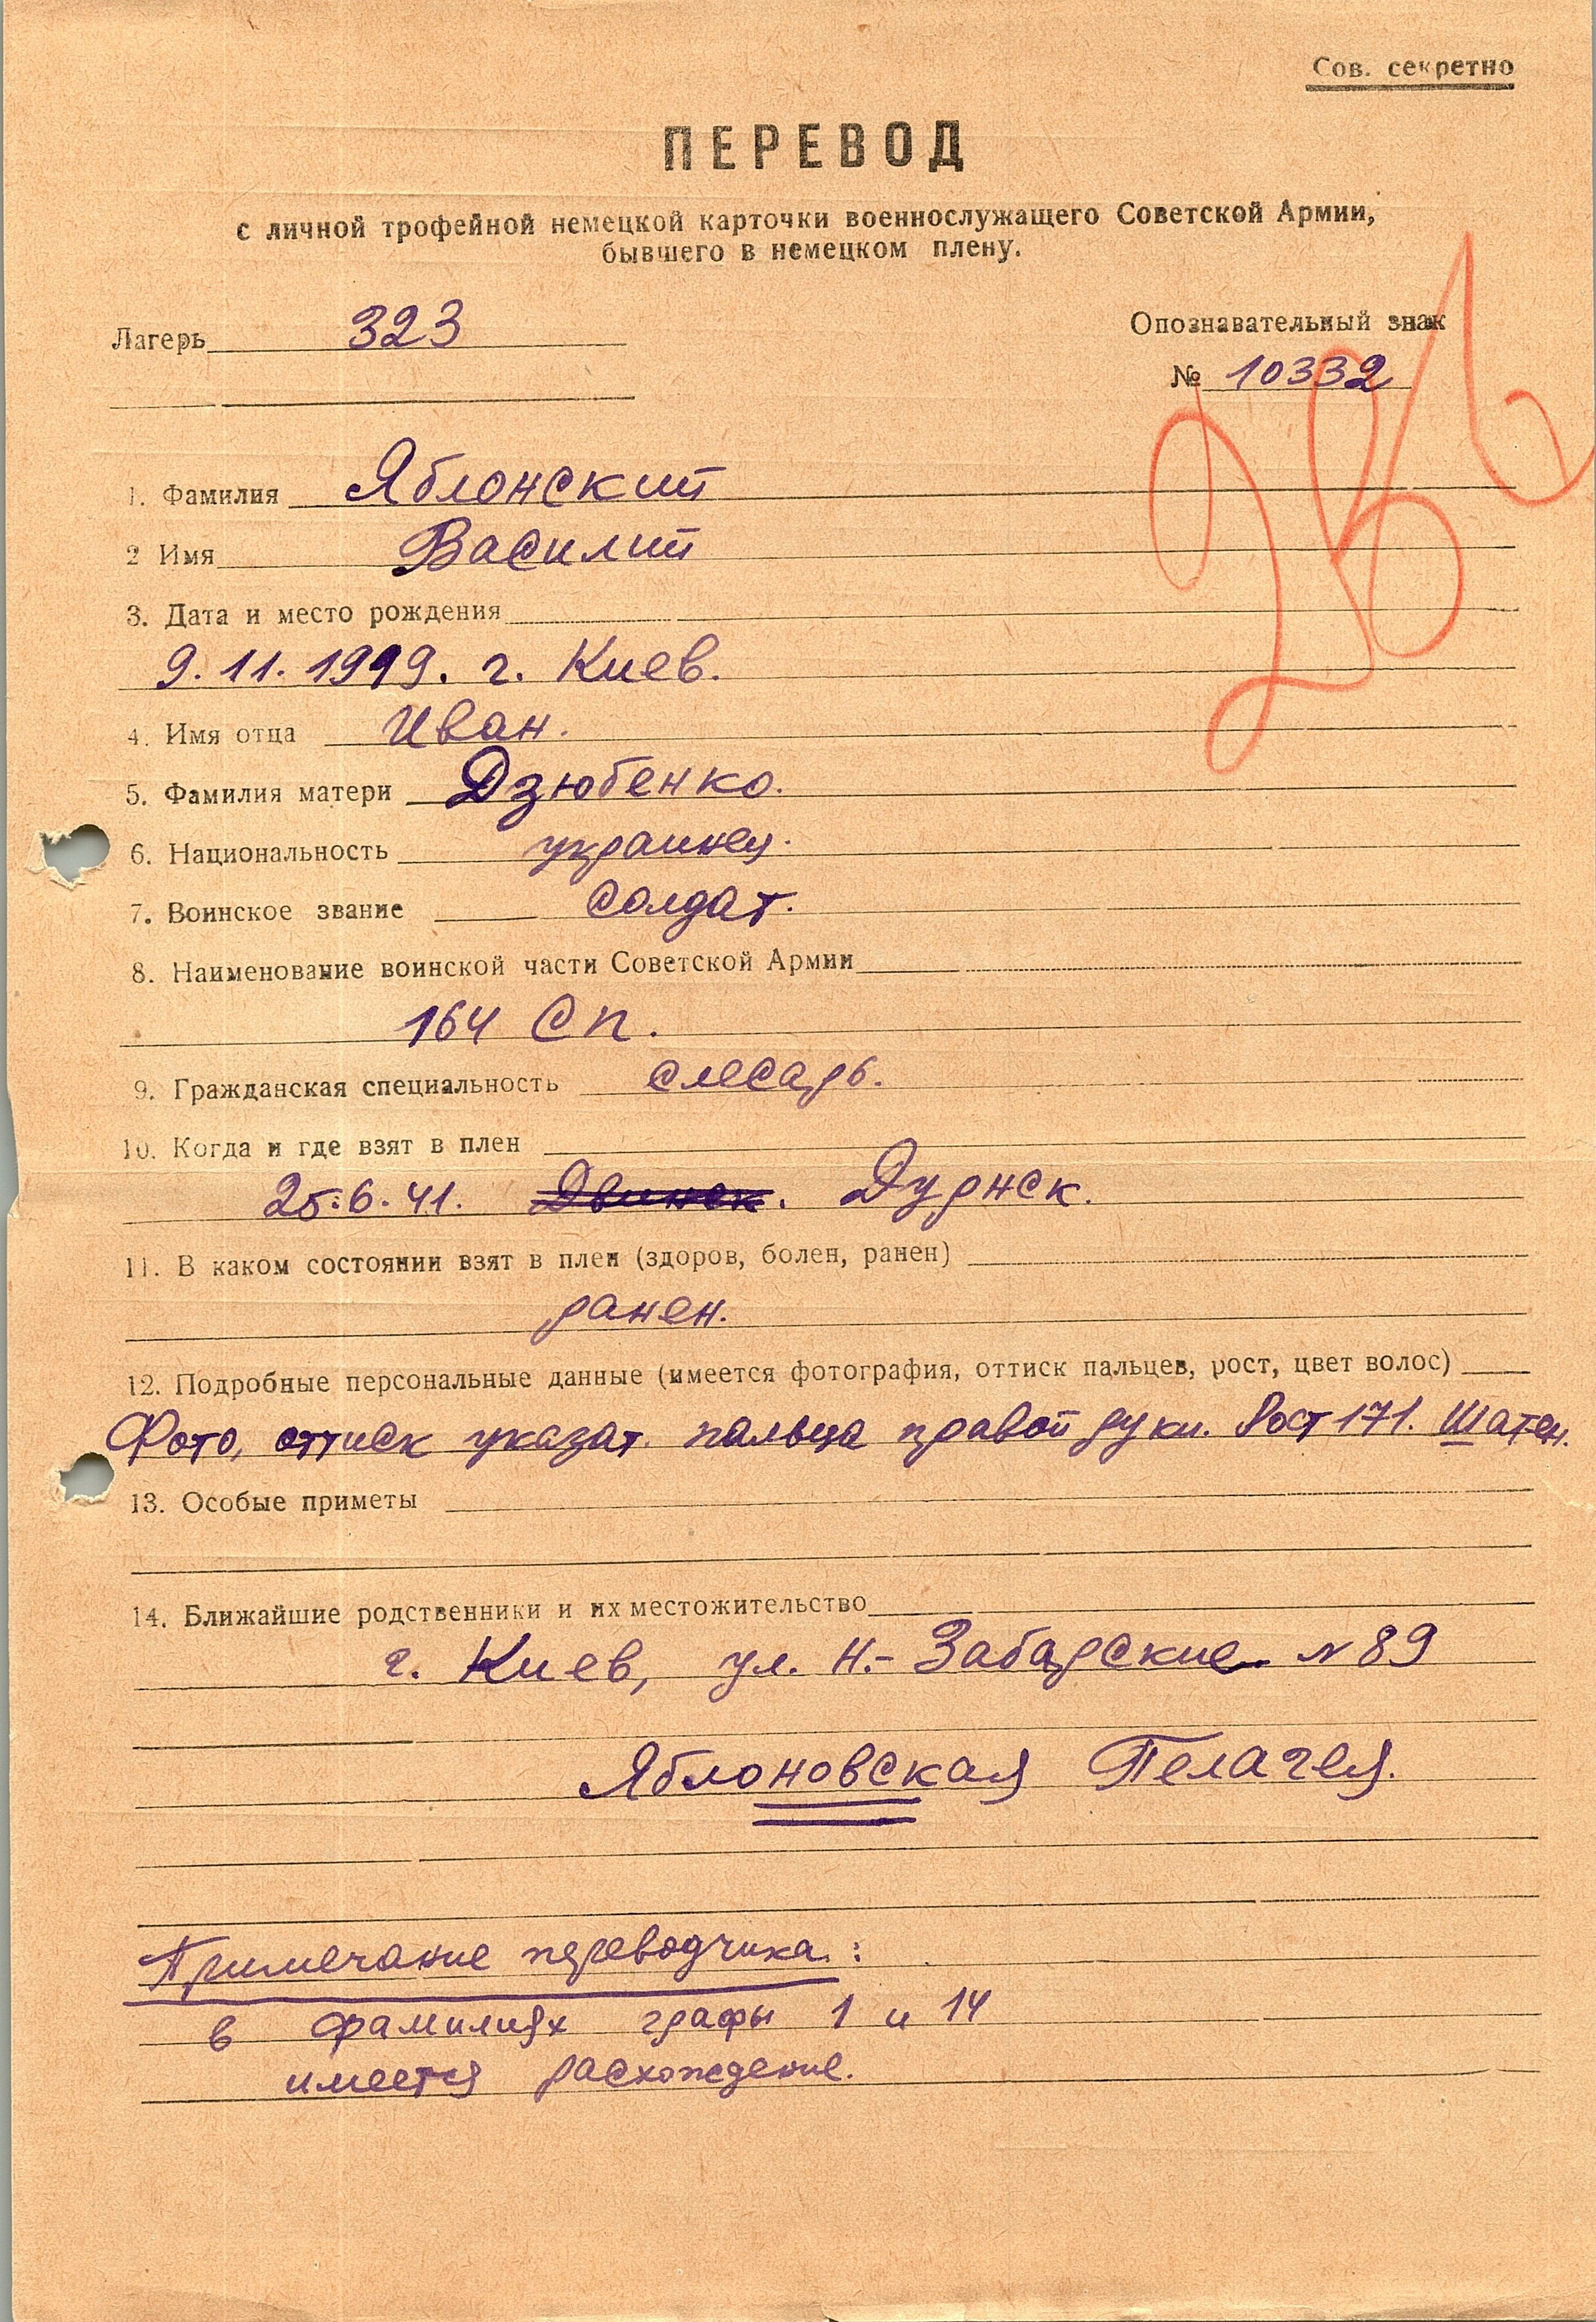 Сов. секретно
ПЕРЕВОД
с личной трофейной немецкой карточки военнослужащего Советской Армии,
бывшего в немецком плену.
Лагерь 323
Опознавательный знак
№ 10332
1. Фамилия Яблонский
2 Имя Василий
3. Дата и место рождения
9.11.1919. г. Киев.
4. Имя отца Иван.
5. Фамилия матери Дзюбенко.
6. Национальность украинец.
7. Воинское звание Солдат.
8. Наименование воинской части Советской Армии
164 Сп.
9. Гражданская специальность слесарь.
10. Когда и где взят в плен
25.6.41. Двинск. Дурнск.
11. В каком состоянии взят в плен (здоров, болен, ранен)
ранен.
12. Подробные персональные данные (имеется фотография, оттиск пальцев, рост, цвет волос)
Фото, оттиск указат. пальца правой руки. Рост 171. Шатен.
13. Особые приметы
14. Ближайшие родственники и их местожительство
г. Киев, ул. Н.- Забарские № 89
Яблоновская Пелагея.
Примечание переводчика:
в фамилиях графы 1 и 14
имеется расхождение.